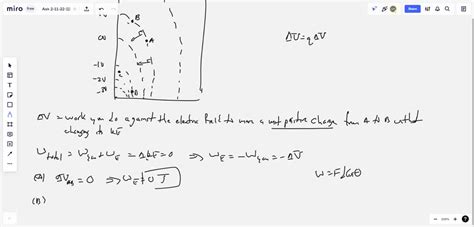 miro
free
Ask 2-11-22-12
Share
B
0V
A
-1V
-2V
-3V
ΔU = qΔV
ΔV = work you do against the electric field to move a unit positive charge from A to B without
changing its KE
W_total = W_you + W_E = ΔKE = 0 ⇒ W_E = -W_you = -ΔU
(A) ΔV_AB = 0 ⇒ W_E = 0 J
W = Fd cosθ
(B)